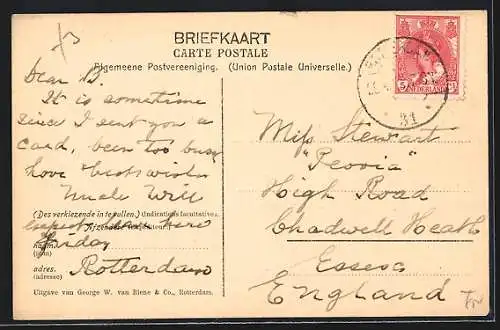 BRIEFKAART
CARTE POSTALE
Algemeene Postvereeniging. (Union Postale Universelle.)
Dear B.
It is sometime
since I sent you a
card, been too busy
have best wishes
Uncle Will
(Des verkiezende in te vullen.) (Indications facultatives.)
expect to leave here
Afzender
Friday
naam
(nom)
Rotterdam
adres.
(adresse)
Uitgave van George W. van Biene & Co., Rotterdam.
5
NEDERLAND
31
Miss Stewart
"Peovia"
High Road
Chadwell Heath
Essex
England